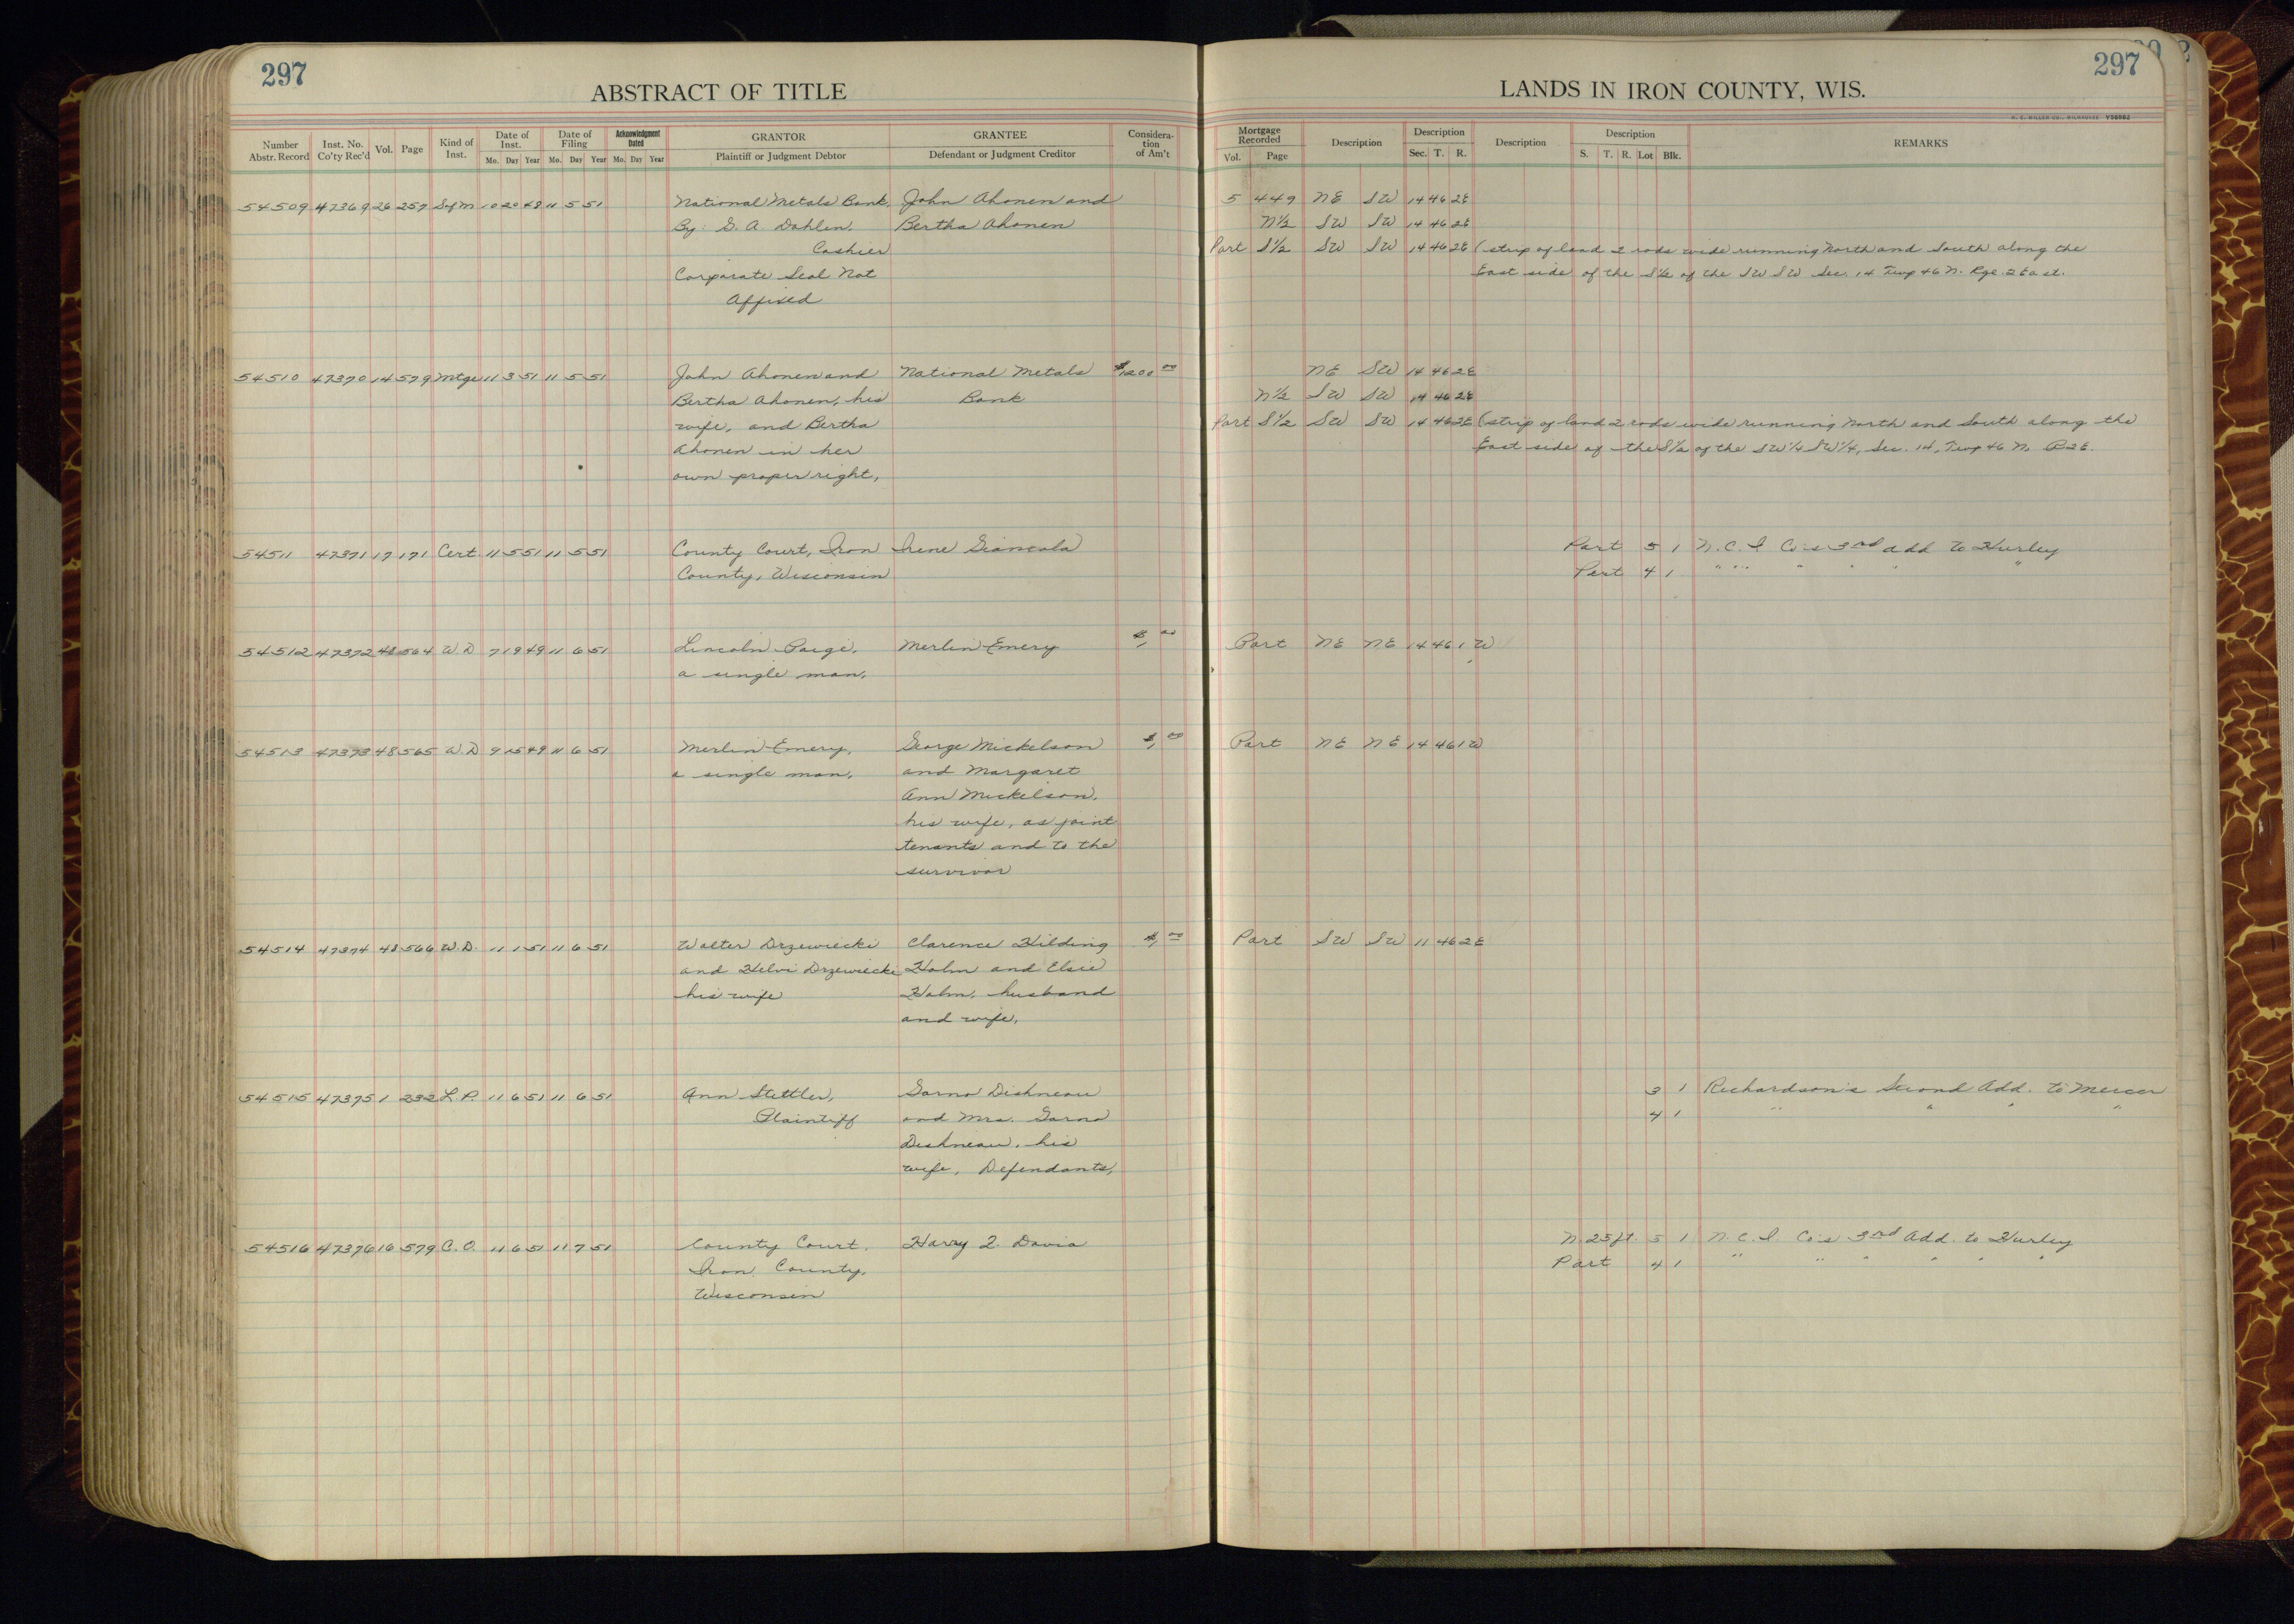 297
ABSTRACT OF TITLE
Number Abstr. Record
Inst. No. Co'ty Rec'd
Vol.
Page
Kind of Inst.
Date of Inst.
Mo. Day Year
Date of Filing
Mo. Day Year
Acknowledgment Dated
Mo. Day Year
GRANTOR
Plaintiff or Judgment Debtor
GRANTEE
Defendant or Judgment Creditor
Considera-tion of Am't
54509 47369 26 257 Sfm 10 20 48 11 5 51 National Metals Bank, John Ahonen and
By: G. A. Dahlen, Bertha Ahonen
Cashier
Corporate Seal Not
Affixed
54510 47370 14 579 Mtge 11 3 51 11 5 51 John Ahonen and National Metals $1200 00
Bertha Ahonen, his Bank
wife, and Bertha
Ahonen in her
own proper right,
54511 47371 17 171 Cert. 11 5 51 11 5 51 County Court, Iron Irene Giancola
County, Wisconsin
54512 47372 48 564 W.D 7 19 49 11 6 51 Lincoln Paige, Merlin Emery $1, 00
a single man,
54513 47373 48 565 W.D 9 15 49 11 6 51 Merlin Emery, George Mickelson $1, 00
a single man, and Margaret
Ann Mickelson,
his wife, as joint
tenants and to the
survivor
54514 47374 48 566 W.D. 11 1 51 11 6 51 Walter Drzewiecki Clarence Hilding $1, 00
and Helvi Drzewiecki Holm and Elsie
his wife Holm, husband
and wife,
54515 47375 1 232 L.P. 11 6 51 11 6 51 Ann Stettler, Garno Dishneau
Plaintiff and Mrs. Garno
Dishneau, his
wife, Defendants,
54516 47376 16 579 C.O. 11 6 51 11 7 51 County Court, Harry Z. Davia
Iron County,
Wisconsin
297
LANDS IN IRON COUNTY, WIS.
Mortgage Recorded
Vol. Page
Description
Description
Sec. T. R.
Description
Description
S. T. R. Lot Blk.
REMARKS
5 449 NE SW 14 46 2E
N½ SW SW 14 46 2E
Part S½ SW SW 14 46 2E (strip of land 2 rods wide running North and South along the
East side of the S½ of the SW SW Sec. 14 Twp 46 N. Rge. 2 East.
NE SW 14 46 2E
N½ SW SW 14 46 2E
Part S½ SW SW 14 46 2E (strip of land 2 rods wide running North and South along the
East side of the S½ of the SW¼ SW¼, Sec. 14, Twp 46 N. R2E.
Part 5 1 N.C.I. Co's 3rd add to Hurley
Part 4 1 " " " " " " "
Part NE NE 14 46 1 W
Part NE NE 14 46 1 W
Part SW SW 11 46 2E
3 1 Richardson's Second Add. to Mercer
4 1 " " " "
N. 25 ft. 5 1 N.C.I. Co's 3rd Add. to Hurley
Part 4 1 " " " " " "